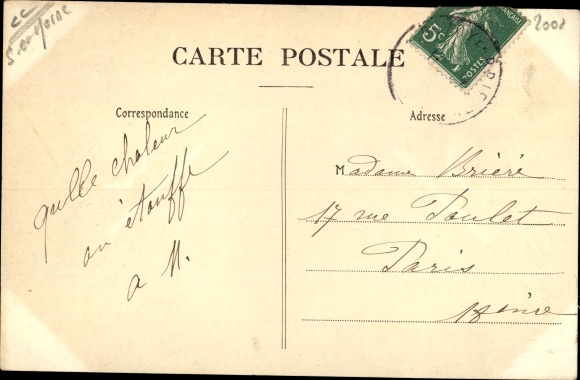 CC
S.et Marne
2001
5c
POSTES
CARTE POSTALE
Correspondance
Adresse
quelle chaleur
on étouffe
a M.
Madame Briére
17 rue Poulet
Paris
18ème